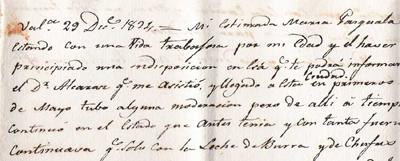 Valpo. 29 Dice. 1824. — Mi estimada Maria Pasquala
estando con una Vida trabajosa por mi Edad y el haver
principiado una indisposicion en esa qe. te podrá informar
el Dr. Alcazar qe. me asistió, y llegado a esta Ciudad en primeros
de Mayo tubo alguna moderacion pero de alli á tiempo
continuó en el estado que antes tenia y con tanta fuerza
continuava qe. solo con la Leche de Burra y de